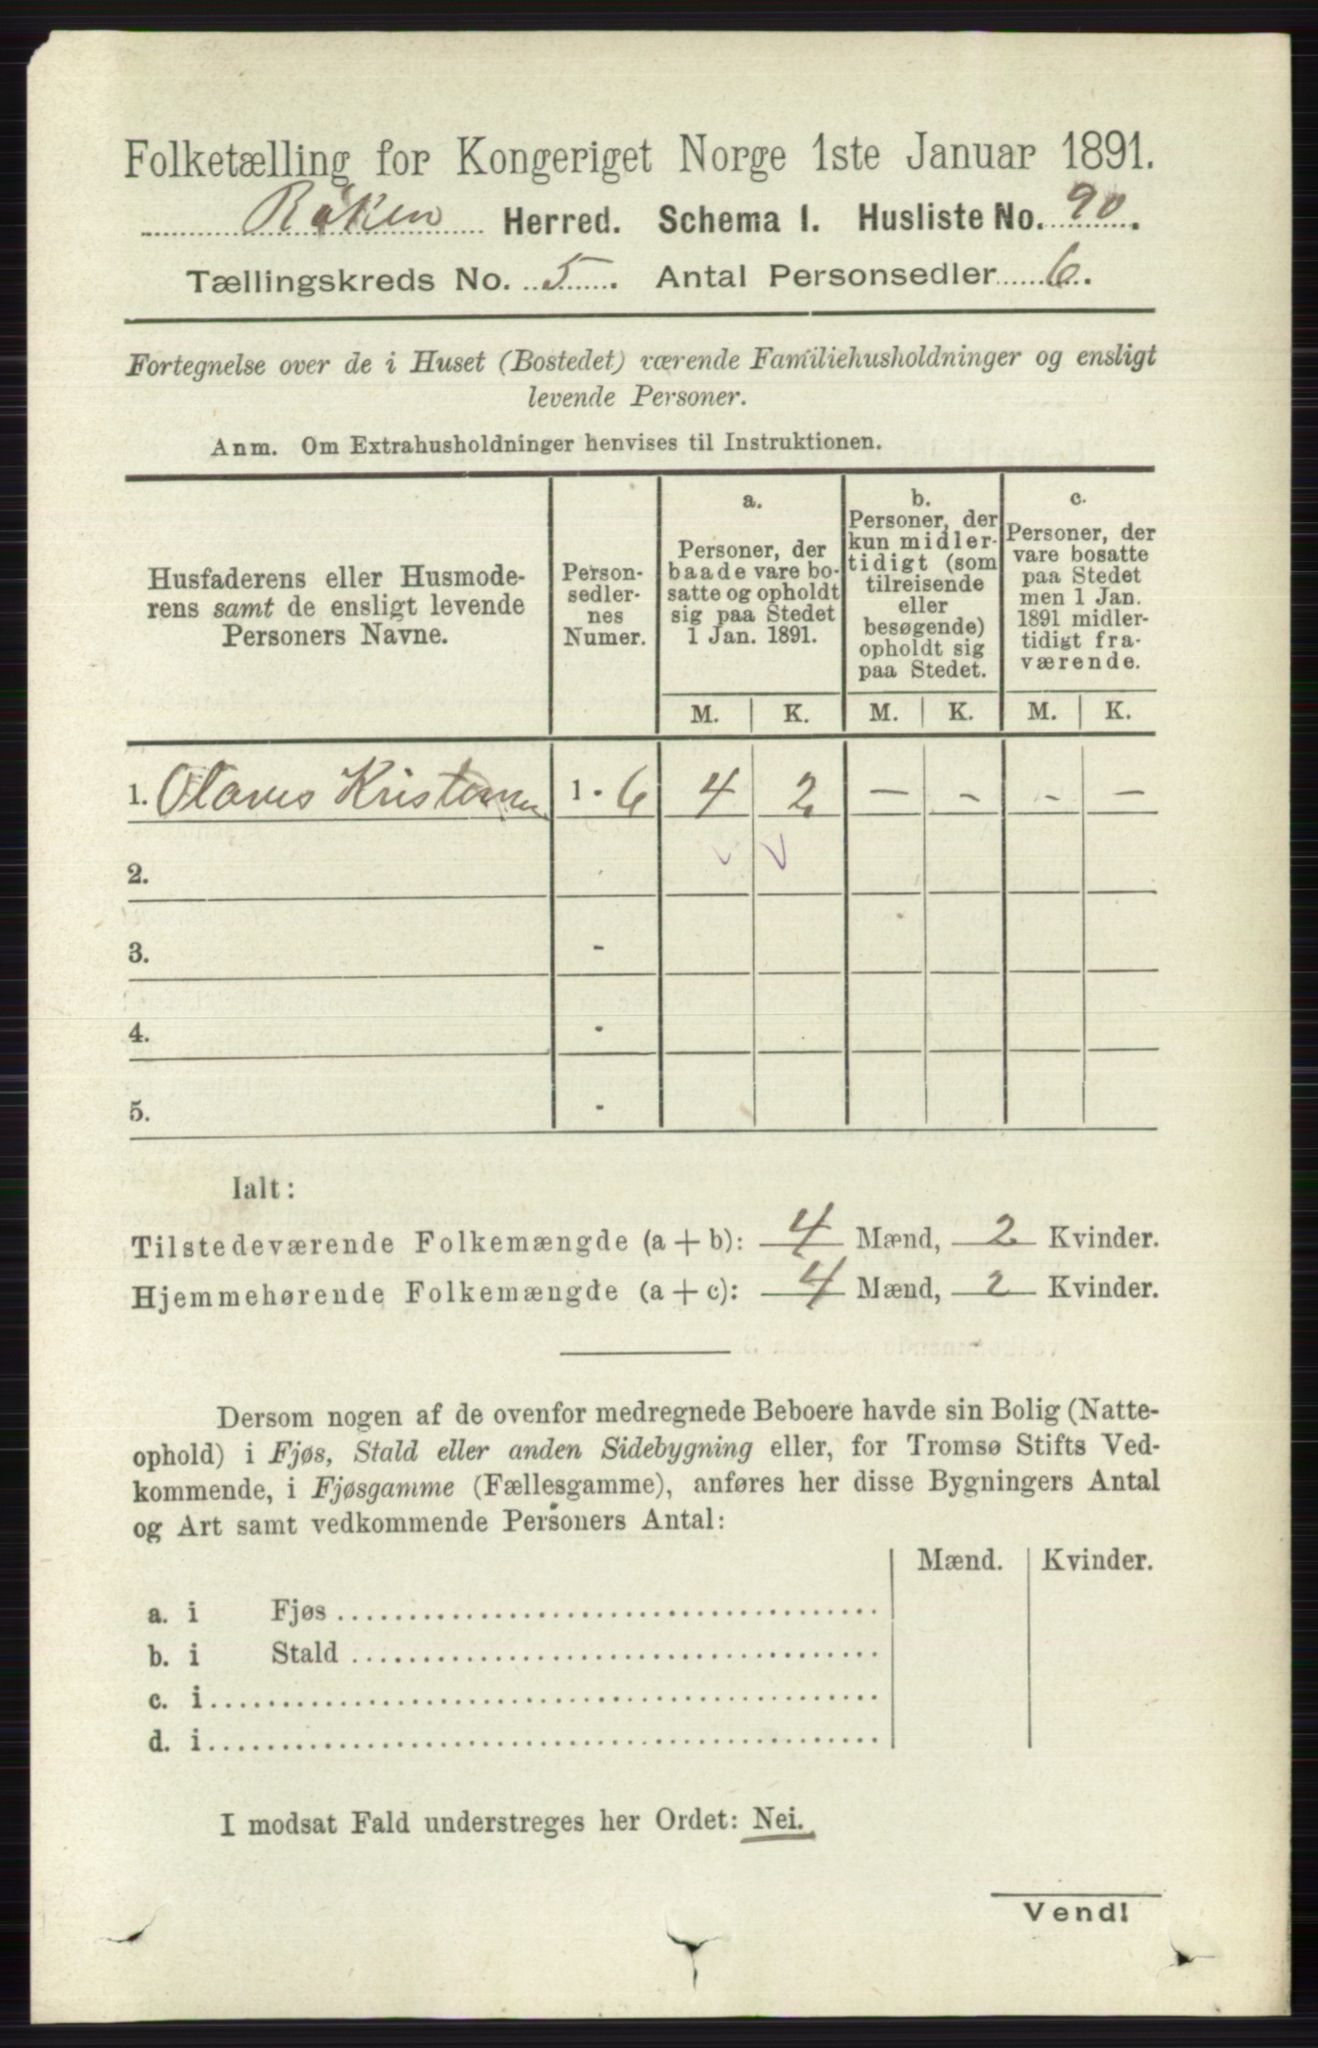 Folketælling for Kongeriget Norge 1ste Januar 1891.
Røken Herred. Schema I. Husliste No. 90.
Tællingskreds No. 5. Antal Personsedler 6.
Fortegnelse over de i Huset (Bostedet) værende Familiehusholdninger og ensligt
levende Personer.
Anm. Om Extrahusholdninger henvises til Instruktionen.
Husfaderens eller Husmode-
rens samt de ensligt levende
Personers Navne.
Person-
sedler-
nes
Numer.
a.
Personer, der
baade vare bo-
satte og opholdt
sig paa Stedet
1 Jan. 1891.
b.
Personer, der
kun midler-
tidigt (som
tilreisende
eller
besøgende)
opholdt sig
paa Stedet.
c.
Personer, der
vare bosatte
paa Stedet
men 1 Jan.
1891 midler-
tidigt fra-
værende.
M. K. M. K. M. K.
1. Olaves 1 - 6 4 2 - - - -
2.
3. -
4. -
5. -
Ialt:
Tilstedeværende Folkemængde (a + b): 4 Mænd, 2 Kvinder.
Hjemmehørende Folkemængde (a + c): 4 Mænd, 2 Kvinder.
Dersom nogen af de ovenfor medregnede Beboere havde sin Bolig (Natte-
ophold) i Fjøs, Stald eller anden Sidebygning eller, for Tromsø Stifts Ved-
kommende, i Fjøsgamme (Fællesgamme), anføres her disse Bygningers Antal
og Art samt vedkommende Personers Antal:
Mænd. Kvinder.
a. i Fjøs
b. i Stald
c. i
d. i
I modsat Fald understreges her Ordet: Nei.
Vend!